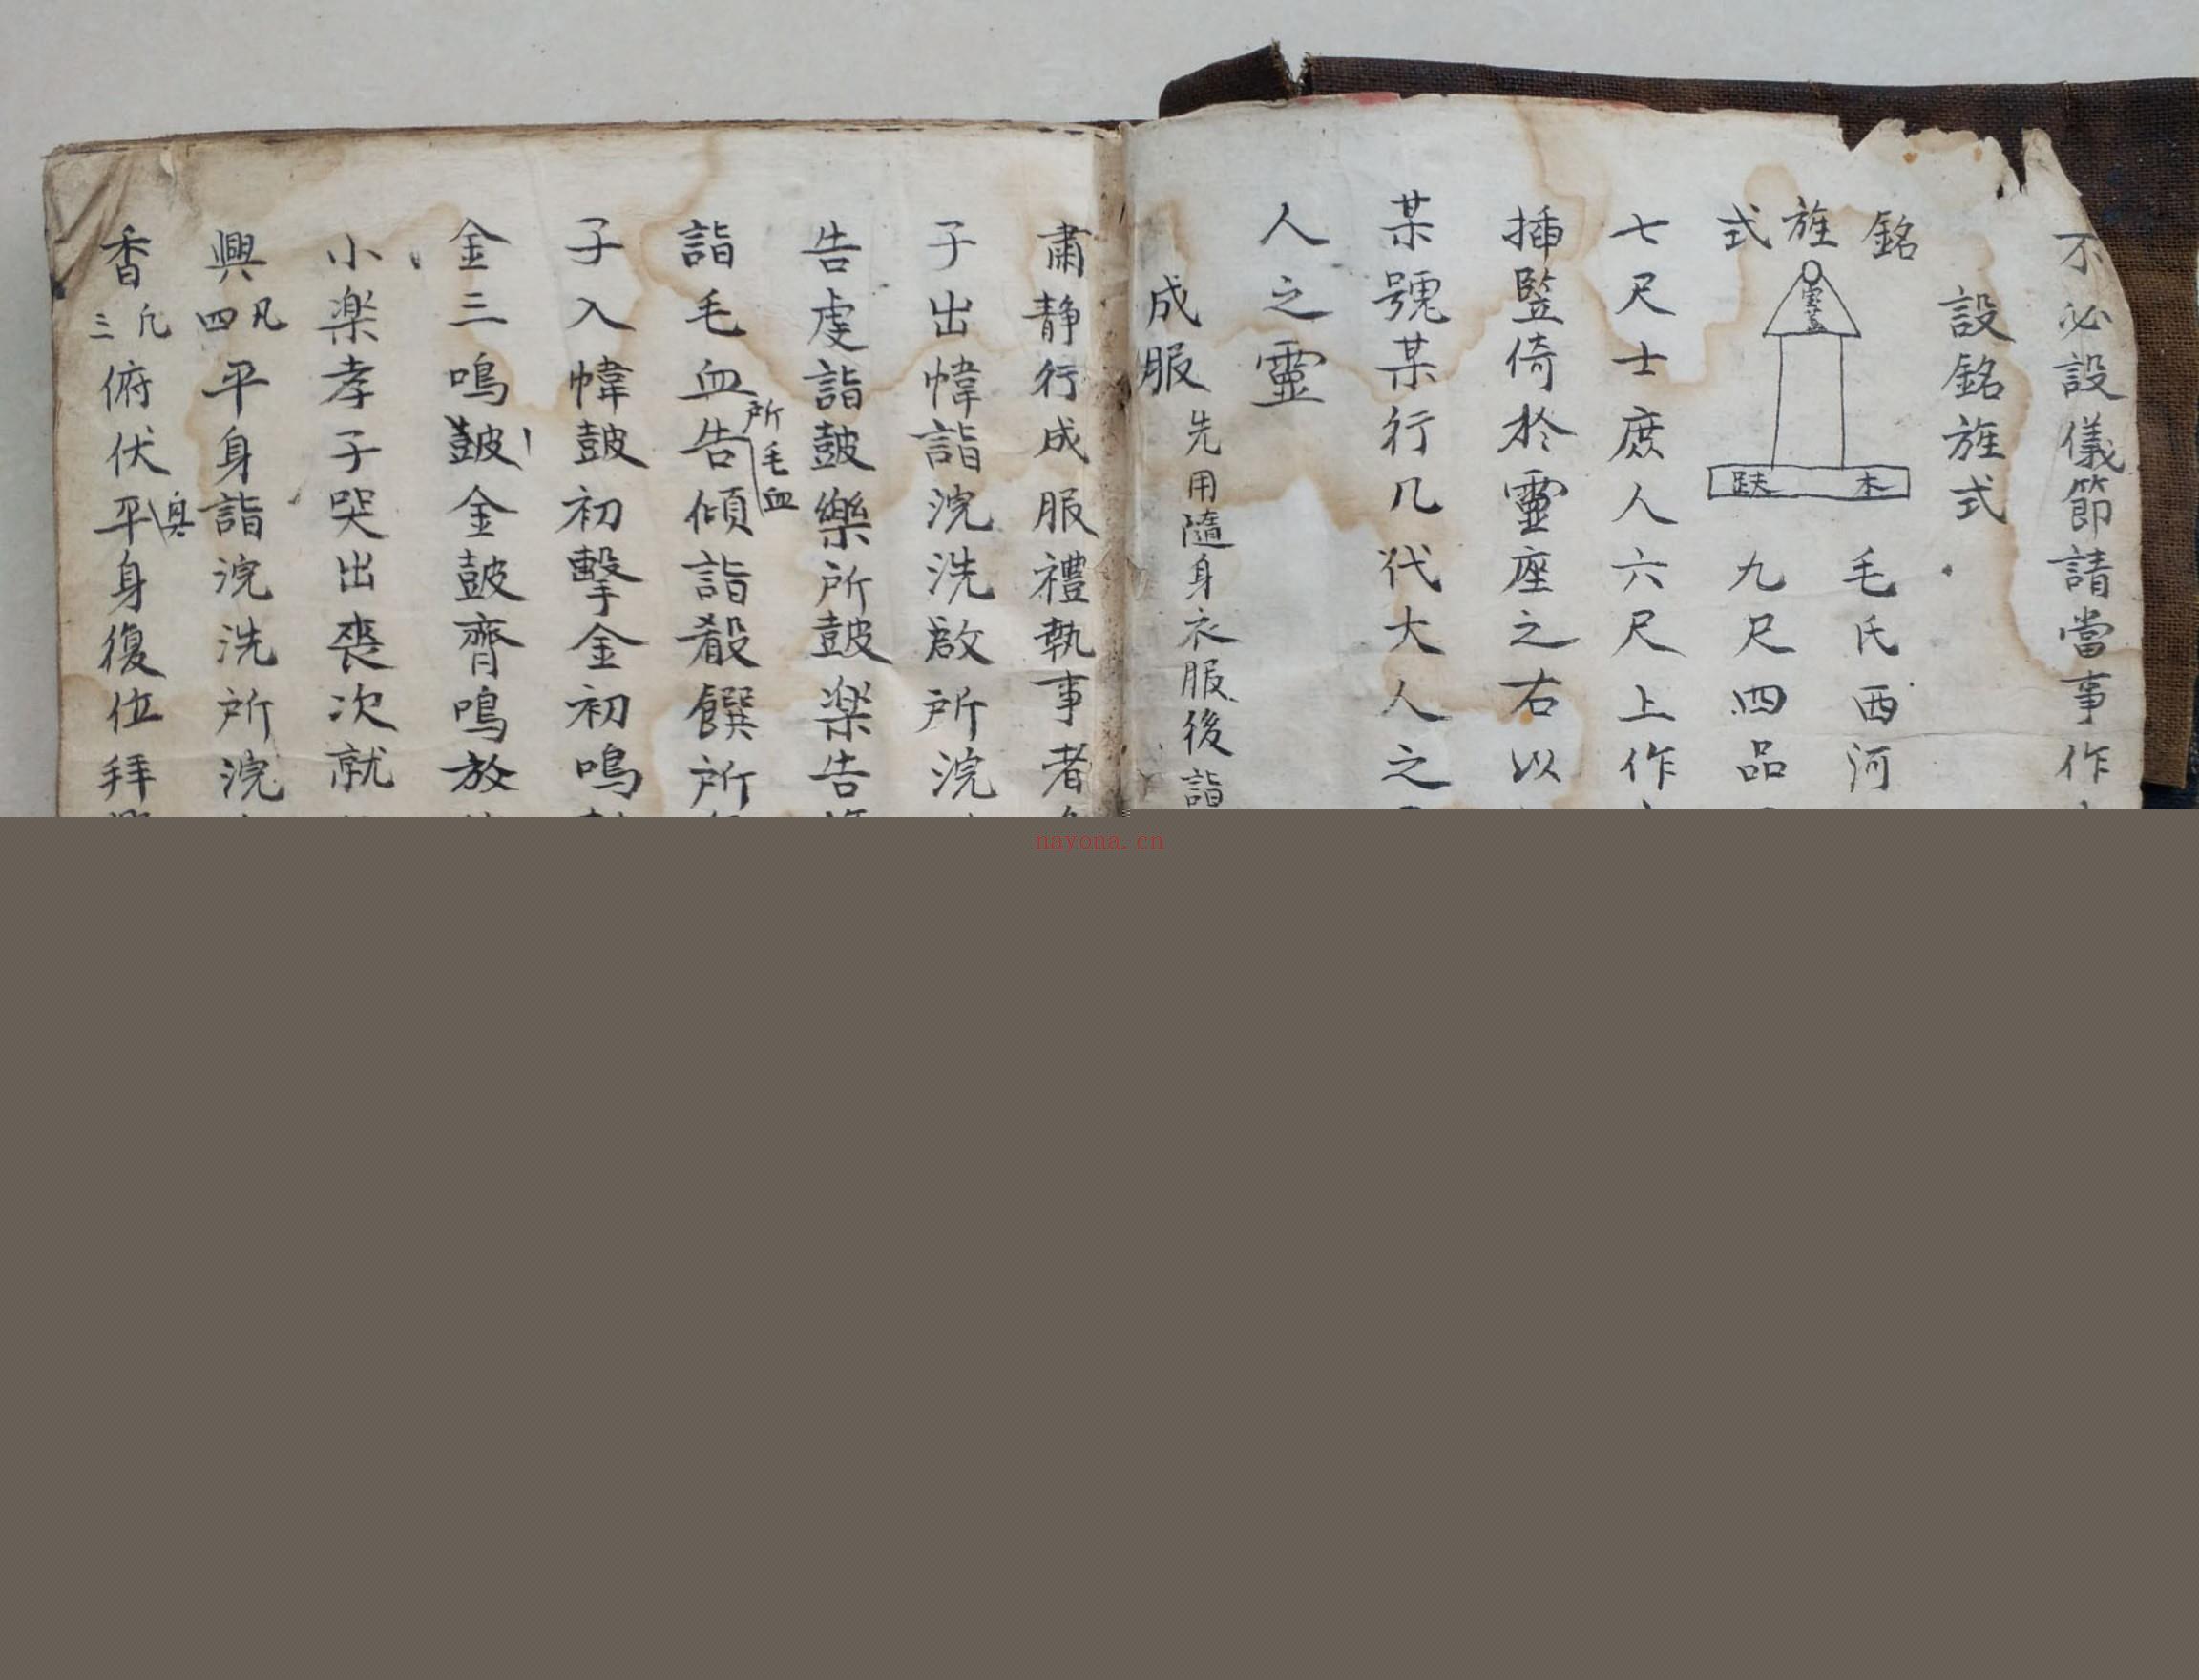 不必設儀節請當事作
設銘旌式
銘旌式
靈
木趺
毛氏西河
九尺四品
七尺士庶人六尺上作
插竪倚於靈座之右以
某號某行几代大人之
人之靈
成服先用隨身衣服後詣
肅静行成服禮執事者
子出幃詣浣洗啟所浣
告虔詣鼓樂所鼓楽告
詣毛血所毛血告傾詣殽饌所
子入幃鼓初擊金初鳴
金三鳴鼓金鼓齊鳴放
小楽孝子哭出喪次就
興凡四平身詣浣洗所浣
香凡三俯伏興平身復位拜
nayona.cn